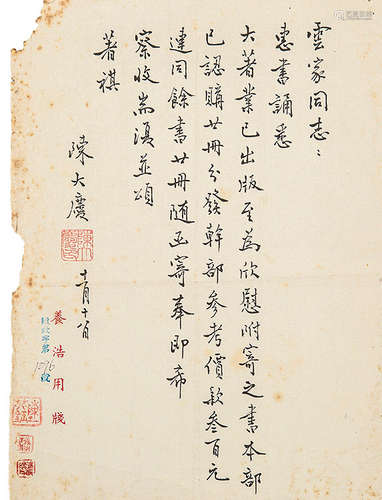 雲家同志：
惠書誦悉
大著業已出版至為欣慰附寄之書本部
已認購廿冊分發幹部參考價款叁百元
連同餘書廿冊隨函寄奉即希
察收耑澷並頌
著祺
陳大慶
養浩用牋